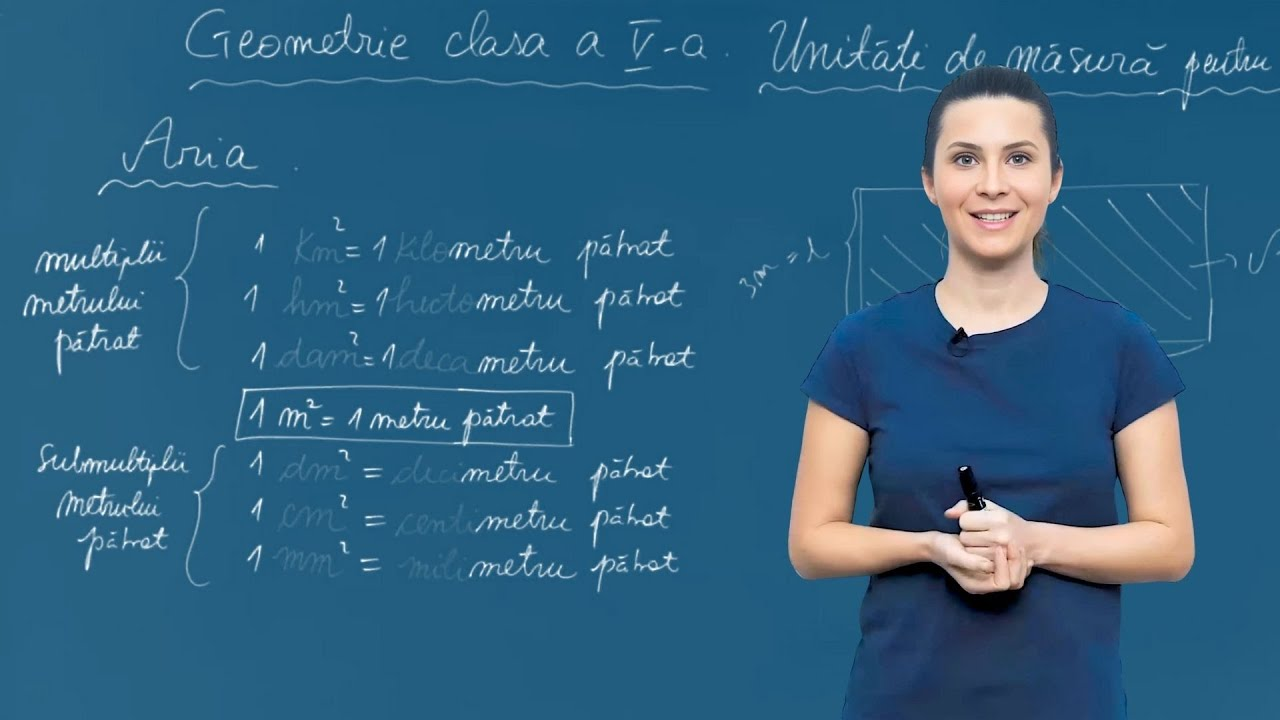 Geometrie clasa a V-a. Unități de măsură pentru
Aria.
multiplii
metrului
pătrat
1 km² = 1 kilometru pătrat
1 hm² = 1 hectometru pătrat
1 dam² = 1 decametru pătrat
1 m² = 1 metru pătrat
Submultiplii
metrului
pătrat
1 dm² = decimetru pătrat
1 cm² = centimetru pătrat
1 mm² = milimetru pătrat
3m = l